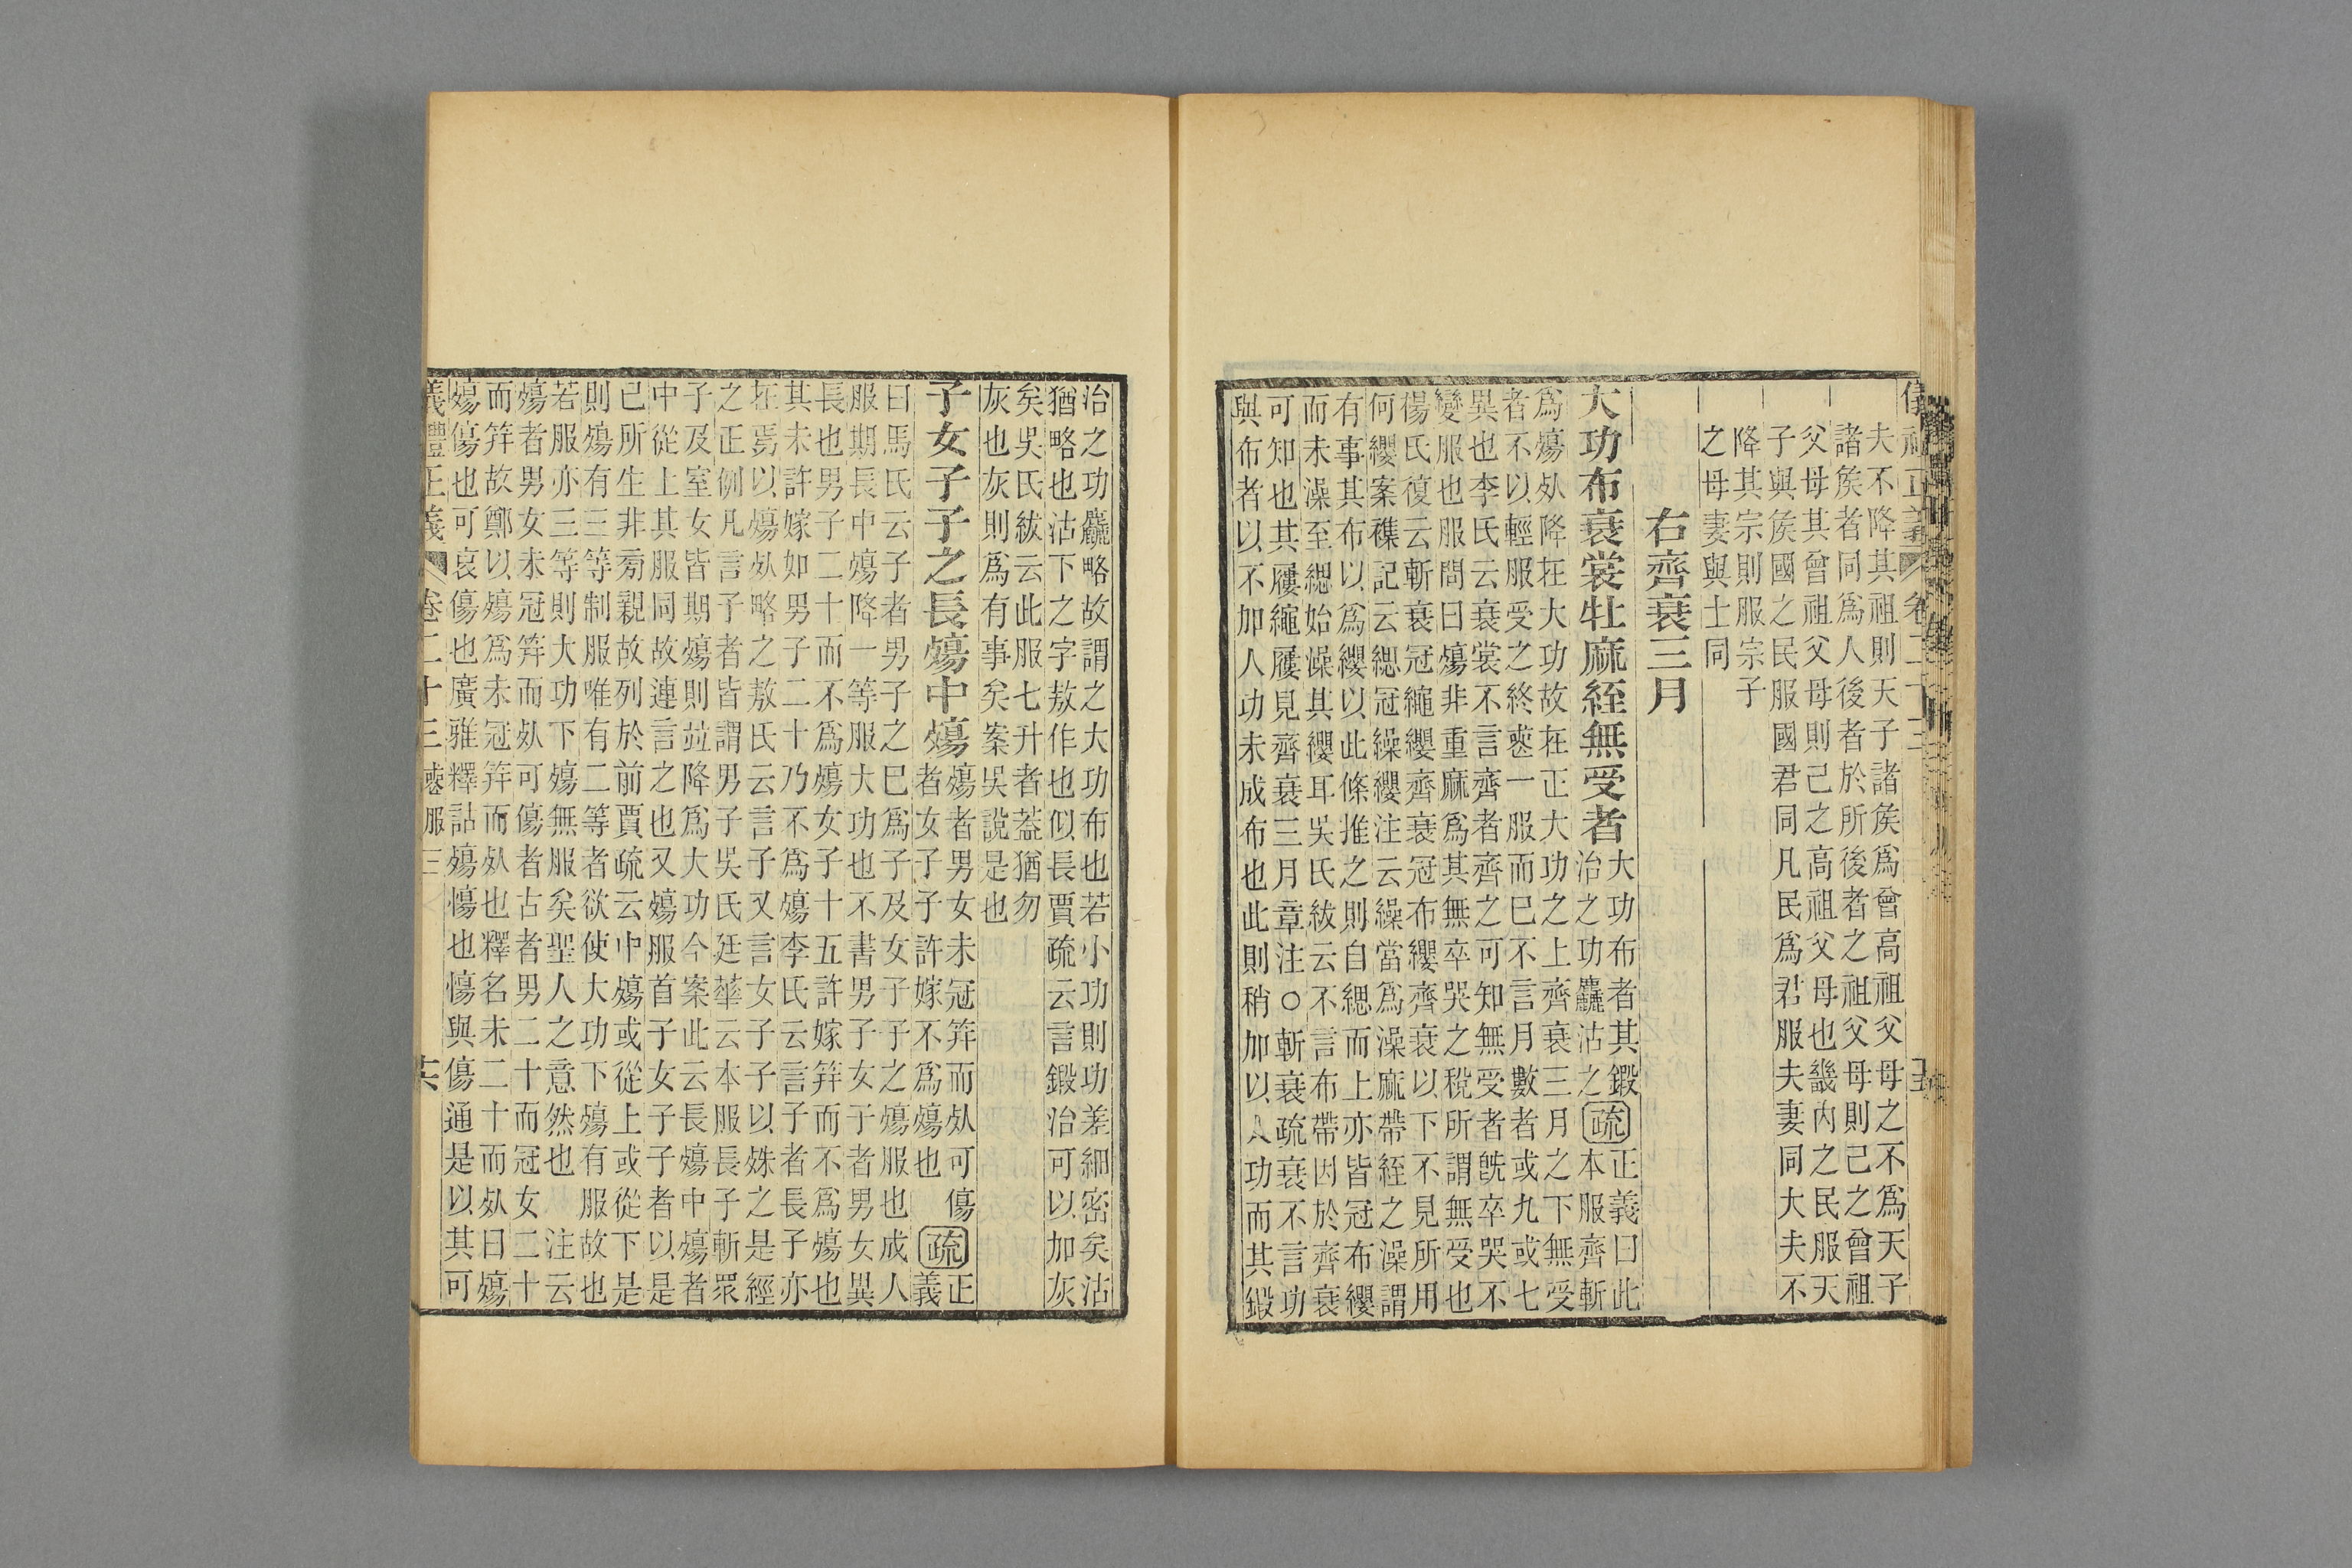 夫不降其祖則天子諸矦爲曾高祖父母之不爲天子
諸矦者同爲人後者於所後者之祖父母則己之曾祖
父母其曾祖父母則己之高祖父母也畿內之民服天
子與矦國之民服國君同凡民爲君服夫妻同大夫不
降其宗則服宗子
之母妻與士同
右齊衰三月
大功布衰裳牡麻絰無受者
大功布者其鍛
治之功麤沽之
疏
正義曰此
本服齊斬
爲殤𣦸降在大功故在正大功之上齊衰三月之下無受
者不以輕服受之終䘮一服而已不言月數者或九或七
異也李氏云衰裳不言齊者齊之可知無受者旣卒哭不
變服也服問曰殤非重麻爲其無卒哭之稅所謂無受也
楊氏復云斬衰冠繩纓齊衰冠布纓齊衰以下不見所用
何纓案襍記云緦冠繰纓注云繰當爲澡麻帶絰之澡謂
有事其布以爲纓以此條推之則自緦而上亦皆冠布纓
而未澡至緦始澡其纓耳吳氏紱云不言布帶因於齊衰
可知也其屨繩屨見齊衰三月章注○斬衰疏衰不言功
與布者以不加人功未成布也此則稍加以人功而其鍛
治之功麤略故謂之大功布也若小功則功差細密矣沽
猶略也沽下之字敖作也似長賈疏云言鍛治可以加灰
矣吳氏紱云此服七升者葢猶勿
灰也灰則爲有事矣案吳說是也
子女子子之長殤中殤
殤者男女未冠笄而𣦸可傷
者女子子許嫁不爲殤也
疏
正
義
曰馬氏云子者男子之已爲子及女子子之殤服也成人
服期長中殤降一等服大功也不書男子女子者男女異
長也男子二十而不爲殤女子十五許嫁笄而不爲殤也
其未許嫁如男子二十乃不爲殤李氏云言子者長子亦
在焉以殤𣦸略之敖氏云言子又言女子子以殊之是經
之正例凡言子者皆謂男子吳氏廷華云本服長子斬眾
子及室女皆期殤則竝降爲大功今案此云長殤中殤者
中從上其服同故連言之也又殤服首子女子子者以是
已所生非㫄親故列於前賈疏云中殤或從上或從下是
則殤有三等制服唯有二等者欲使大功下殤有服故也
若服亦三等則大功下殤無服矣聖人之意然也 注云
殤者男女未冠笄而𣦸可傷者古者男二十而冠女二十
而笄故鄭以殤爲未冠笄而𣦸也釋名未二十而𣦸曰殤
殤傷也可哀傷也廣雅釋詁殤慯也慯與傷通是以其可
義禮正義 卷二十三 䘮服三